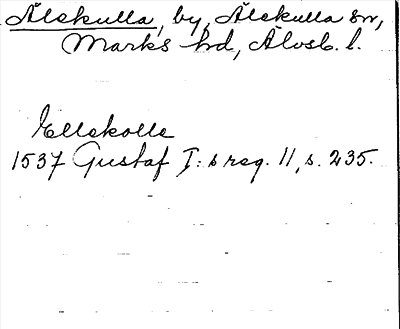 Älekulla, by, Älekulla sn,
Marks hd, Älvsb. l.
Ellekolle
1537 Gustaf I:s reg. 11, s. 235.